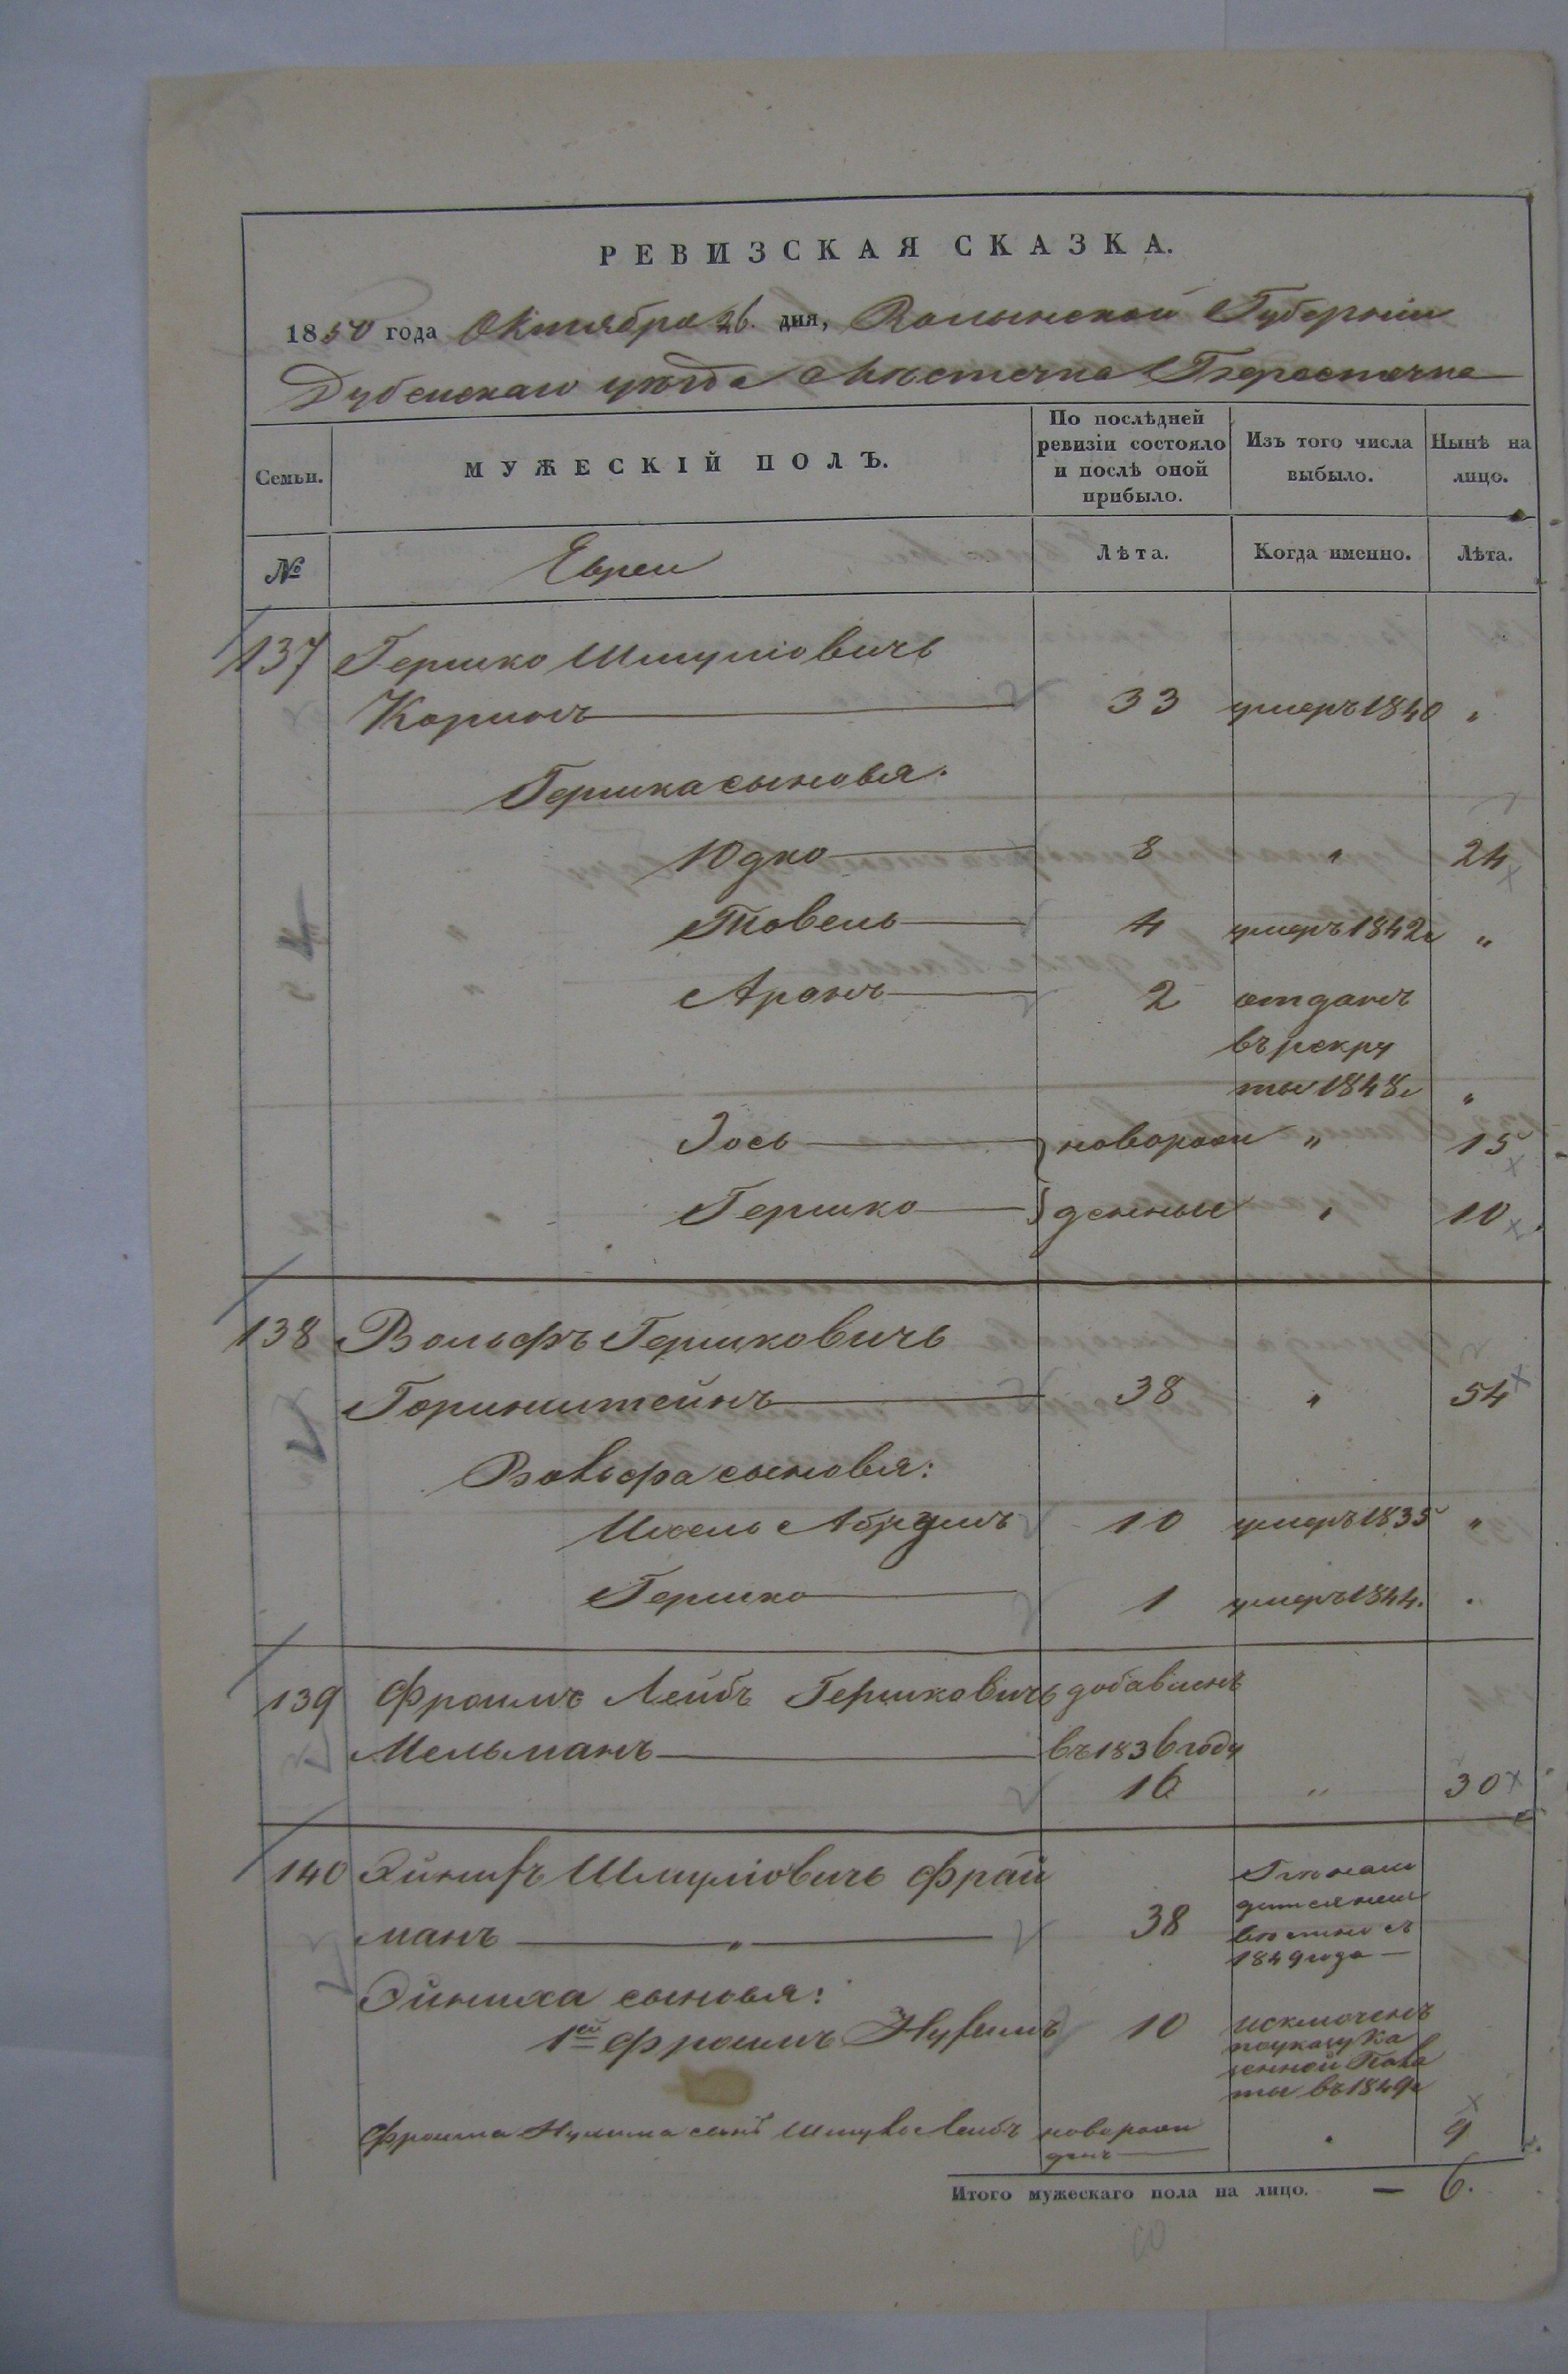 РЕВИЗСКАЯ СКАЗКА.
1850 года Октября 26. дня, Волынской Губерніи
Дубенскаго уѣзда Мѣстечка Берестечка
Семьи.
МУЖЕСКІЙ ПОЛЪ.
По послѣдней ревизіи состояло и послѣ оной прибыло.
Изъ того числа выбыло.
Нынѣ на лицо.
№ Евреи Лѣта. Когда именно. Лѣта.
137 Гершко Шмуліовичъ
33 умеръ 1840 "
Гершка сыновья.
Юдко 8 " 24
4 умеръ 1842г "
Аронъ 2 отданъ
въ рекру
ты 1848г "
Зось новорож " 15
Гершко денные " 10
138 Вольфъ Гершковичъ
Горинштейнъ 38 " 54
Вольфа сыновья:
10 умеръ 1835 "
Гершко 1 умеръ 1844. "
139 Фроимъ Лейбъ Гершковичъ добавленъ
Мельманъ въ 1836 году
16 " 30
140 Шмуліовичъ Фрай
манъ " 38
1849 года
Эйниха сыновья:
1й Фроимъ 10 исключенъ
въ 1849г
Фроима сынъ Лейбъ новорож
денъ " 9
Итого мужескаго пола на лицо. — 6.